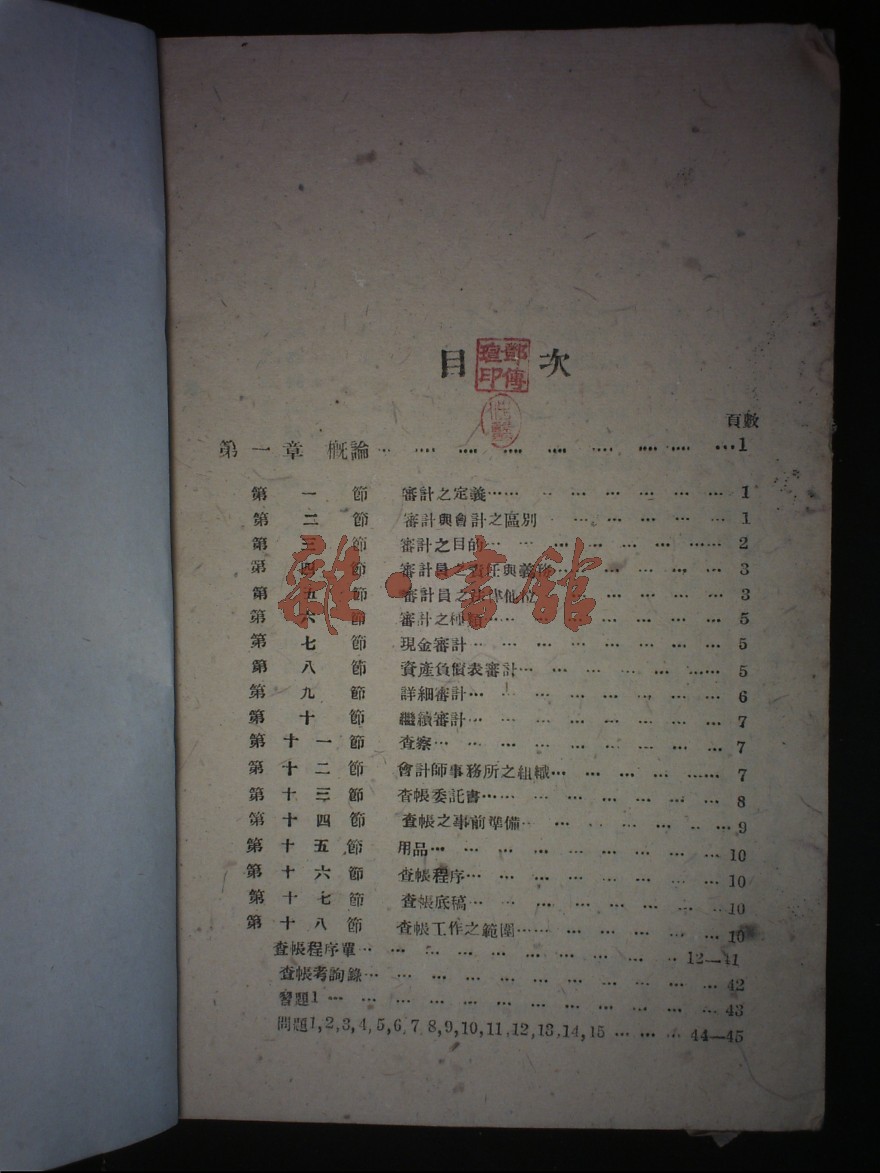 目 次
鄧傳瑄印
頁數
第一章 概論 … …… …… …… …… …… …… …… …1
第一節 審計之定義…… … … … … … … 1
第二節 審計與會計之區別 … … … … … 1
第三節 審計之目的… … … … … … …… 2
第四節 審計員之責任與義務… … … … … 3
第五節 審計員之法律地位 … … … … 3
第六節 審計之種類… … … … … … … 5
第七節 現金審計… … … … … … … … 5
第八節 資產負債表審計… … … … … …… 5
第九節 詳細審計… … … … … … … … 6
第十節 繼續審計… … … … … … … … 7
第十一節 查察… … … … … … … … … 7
第十二節 會計師事務所之組織… … … … … 7
第十三節 查帳委託書… … … … … … … 8
第十四節 查帳之事前準備… … … … … … 9
第十五節 用品… … … … … … … … … 10
第十六節 查帳程序… … … … … … … … 10
第十七節 查帳底稿… … … … … … … … 10
第十八節 查帳工作之範圍…… … … … … … 10
查帳程序單… … … … … … … … … … 12—41
查帳考詢錄… … … … … … … … … … 42
習題1 … … … … … … … … … … … 43
問題1,2,3,4,5,6,7,8,9,10,11,12,13,14,15 … … … 44—45
雜·書館